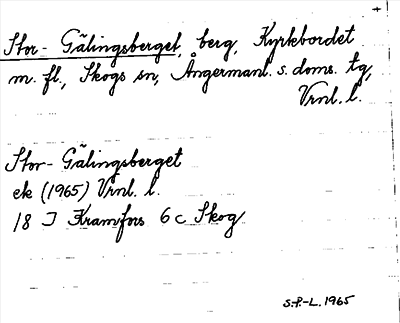 Stor-Gälingsberget, berg, Kyrkbordet
m. fl., Skogs sn, Ångermanl. s. doms. tg,
Vrnl. l.
Stor-Gälingsberget
ek (1965) Vrnl. l.
18 I Kramfors 6 c Skog
S.P.-L. 1965